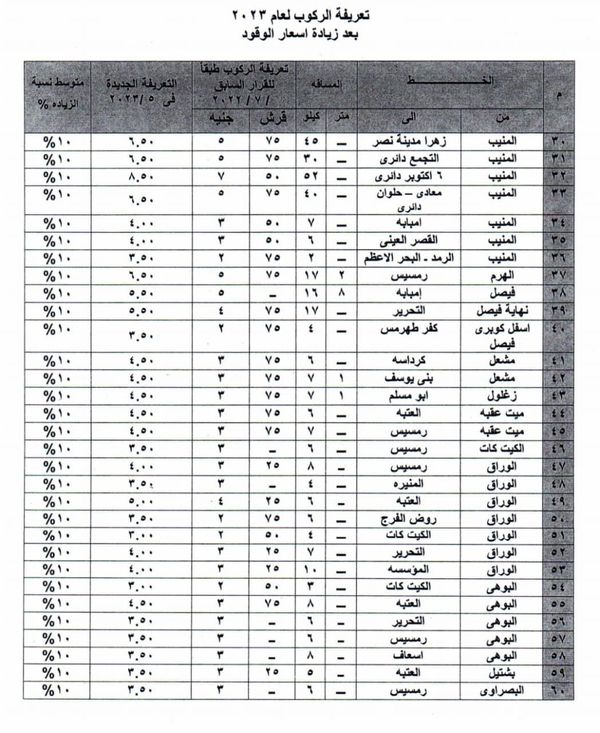 تعريفة الركوب لعام ٢٠٢٣
بعد زيادة اسعار الوقود
م الخط المسافه تعريفة الركوب طبقا للقرار السابق ٢٠٢٢/٧/ التعريفة الجديدة فى ٢٠٢٣/٥ متوسط نسبة الزياده %
من الى متر كيلو قرش جنيه
٣٠ المنيب زهرا مدينة نصر ــ ٤٥ ٧٥ ٥ ٦.٥٠ ١٠%
٣١ المنيب التجمع دائرى ــ ٣٠ ٧٥ ٥ ٦.٥٠ ١٠%
٣٢ المنيب ٦ اكتوبر دائرى ــ ٥٢ ٥٠ ٧ ٨.٥٠ ١٠%
٣٣ المنيب معادى – حلوان دائرى ــ ٤٠ ٧٥ ٥ ٦.٥٠ ١٠%
٣٤ المنيب امبابه ــ ٧ ٥٠ ٣ ٤.٠٠ ١٠%
٣٥ المنيب القصر العينى ــ ٦ ٥٠ ٣ ٤.٠٠ ١٠%
٣٦ المنيب الرمد - البحر الاعظم ــ ٢ ٧٥ ٢ ٣.٥٠ ١٠%
٣٧ الهرم رمسيس ٢ ١٧ ٧٥ ٥ ٦.٥٠ ١٠%
٣٨ فيصل إمبابه ٨ ١٦ – ٥ ٥.٥٠ ١٠%
٣٩ نهاية فيصل التحرير ــ ١٧ ٧٥ ٤ ٥.٥٠ ١٠%
٤٠ اسفل كوبرى فيصل كفر طهرمس ــ ٤ ٧٥ ٢ ٣.٥٠ ١٠%
٤١ مشعل كرداسه ــ ٦ ٧٥ ٣ ٤.٥٠ ١٠%
٤٢ مشعل بنى يوسف ١ ٧ ٧٥ ٣ ٤.٥٠ ١٠%
٤٣ زغلول ابو مسلم ١ ٧ ٧٥ ٣ ٤.٥٠ ١٠%
٤٤ ميت عقبه العتبه ــ ٦ ٧٥ ٣ ٤.٥٠ ١٠%
٤٥ ميت عقبه رمسيس ــ ٧ ٧٥ ٣ ٤.٥٠ ١٠%
٤٦ الكيت كات رمسيس ــ ٦ – ٣ ٣.٥٠ ١٠%
٤٧ الوراق رمسيس ــ ٨ ٢٥ ٣ ٤.٠٠ ١٠%
٤٨ الوراق المنيره ــ ٤ – ٣ ٣.٥٠ ١٠%
٤٩ الوراق العتبه – ٦ ٢٥ ٤ ٥.٠٠ ١٠%
٥٠ الوراق روض الفرج ــ ٦ ٧٥ ٢ ٣.٥٠ ١٠%
٥١ الوراق الكيت كات ــ ٤ ٥٠ ٢ ٣.٠٠ ١٠%
٥٢ الوراق التحرير ــ ٧ ٢٥ ٣ ٤.٠٠ ١٠%
٥٣ الوراق المؤسسه ــ ١٠ ٢٥ ٣ ٤.٠٠ ١٠%
٥٤ البوهى الكيت كات ــ ٣ ٥٠ ٢ ٣.٠٠ ١٠%
٥٥ البوهى العتبه ــ ٨ ٧٥ ٣ ٤.٥٠ ١٠%
٥٦ البوهى التحرير ــ ٦ – ٣ ٣.٥٠ ١٠%
٥٧ البوهى رمسيس ــ ٦ – ٣ ٣.٥٠ ١٠%
٥٨ البوهى اسعاف ــ ٨ – ٣ ٣.٥٠ ١٠%
٥٩ بشتيل العتبه ــ ٥ ٢٥ ٣ ٣.٥٠ ١٠%
٦٠ البصراوى رمسيس ــ ٦ – ٣ ٣.٥٠ ١٠%